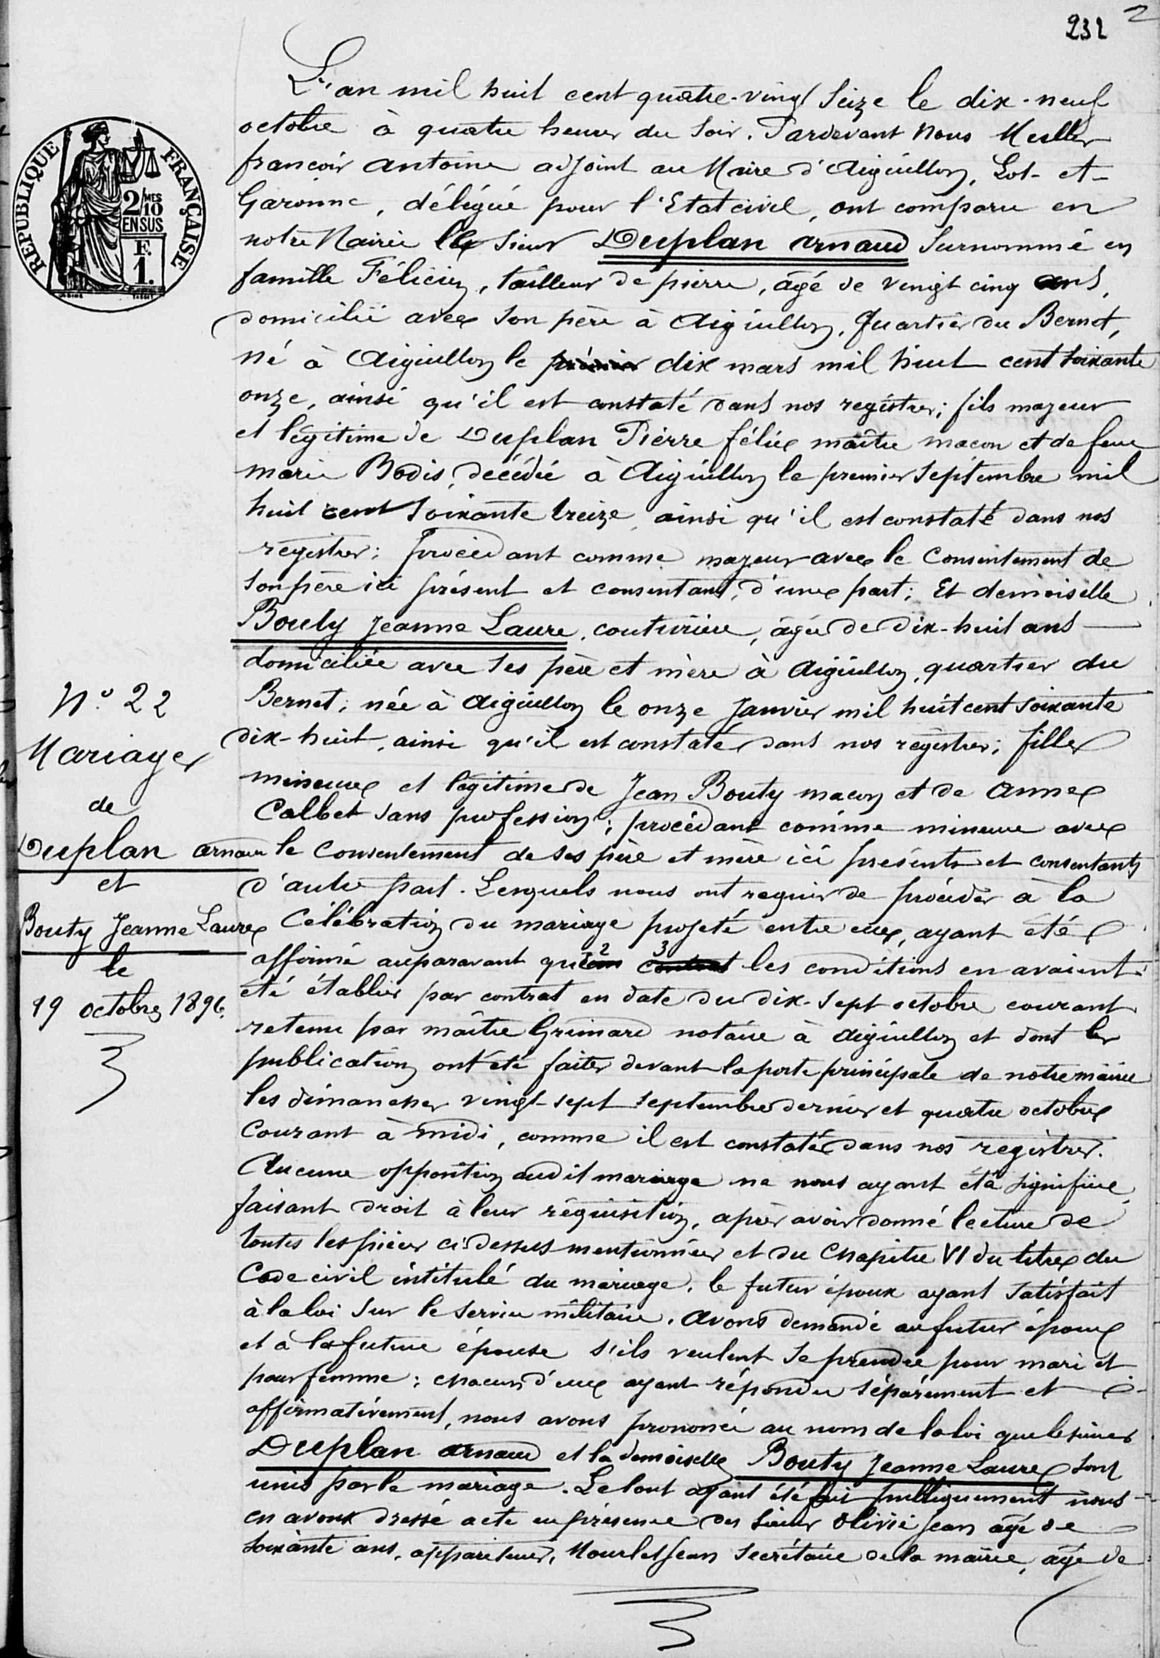 232
2
L'an mil huit cent quatre-vingt seize le dix-neuf
octobre à quatre heures du soir. Pardevant Nous Muller
françois antoine adjoint au Maire d'Aiguillon, Lot-et-
Garonne, délégué pour l'Etat civil, ont comparu en
notre Mairie le Sieur Duplan arnaud Surnommé en
famille Félicien, tailleur de pierre, âgé de vingt cinq ans,
domicilié avec son père à Aiguillon, quartier du Bernet,
Né à Aiguillon le premier dix mars mil huit cent soixante
onze, ainsi qu'il est constaté dans nos registres; fils majeur
et légitime de Duplan Pierre félix maître maçon et de feue
marie Bodis, décédée à Aiguillon le premier septembre mil
huit cent soixante treize, ainsi qu'il est constaté dans nos
registres; procédant comme majeur avec le Consentement de
son père ici présent et consentant, d'une part; Et demoiselle
Bouty Jeanne Laure, couturière, âgée de dix-huit ans
domiciliée avec ses père et mère à aiguillon, quartier du
Bernet, née à Aiguillon le onze Janvier mil huit cent soixante
dix-huit, ainsi qu'il est constaté dans nos registres; fille
mineure et légitime de Jean Bouty maçon et de anne
Calbet sans profession; procédant comme mineure avec
le Consentement de ses père et mère ici présents et consentants
d'autre part. Lesquels nous ont requis de procéder à la
Célébration du mariage projeté entre eux, ayant été
affirmé auparavant que 2 3 contrat les conditions en avaient
été établies par contrat en date du dix-sept octobre courant
retenu par maître Grimard notaire à aiguillon et dont les
publications ont été faites devant la porte principale de notre mairie
les dimanches vingt-sept septembre dernier et quatre octobre
courant à midi, comme il est constaté dans nos registres.
Aucune opposition audit mariage ne nous ayant été signifiée,
faisant droit à leur réquisition, après avoir donné lecture de
toutes les pièces ci-dessus mentionnées et du Chapitre VI du titre du
Code civil intitulé du mariage, le futur époux ayant satisfait
à la loi sur le service militaire. Avons demandé au futur époux
et à la future épouse s'ils veulent se prendre pour mari et
pour femme; chacun d'eux ayant répondu séparément et
affirmativement, nous avons prononcé au nom de la loi que le sieur
Duplan arnaud et la demoiselle Bouty Jeanne Laure sont
unis par le mariage. Le tout ayant été fait publiquement nous
en avons dressé acte en présence des sieurs Olivié Jean âgé de
soixante ans, appariteur, Mourlet Jean Secrétaire de la mairie, âgé de
N° 22
Mariage
de
Duplan arnaud
et
Bouty Jeanne Laure
le
19 octobre 1896.
RÉPUBLIQUE FRANÇAISE
2/10 MES
EN SUS
F.
1.